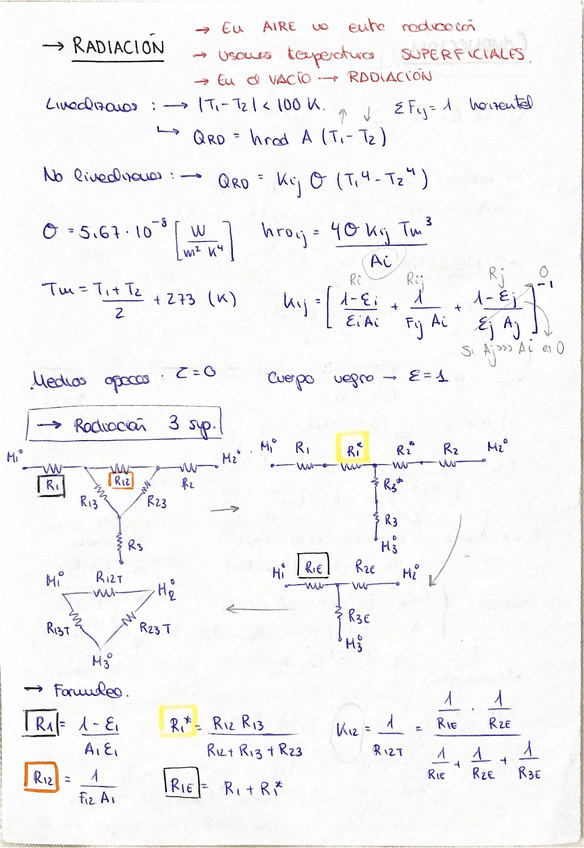 → En AIRE no entra radiación
→ RADIACIÓN
→ Usamos temperatura SUPERFICIALES.
→ En el VACÍO → RADIACIÓN
Linealizamos : → |T1-T2| < 100 K. ΣFij = 1 horizontal
↳ QRD = hrad A (T1 - T2)
No linealizamos : → QRD = Kij σ (T1⁴ - T2⁴)
σ = 5,67·10⁻⁸ [W/m² K⁴] hrDij = 4σ Kij Tm³ / Ai
Tm = (T1 + T2)/2 + 273 (K)
Ri Rij Rj 0
Kij = [(1-εi)/(εi Ai) + 1/(Fij Ai) + (1-εj)/(εj Aj)]⁻¹
Si Aj >>> Ai es 0
Medios opacos. τ=0 Cuerpo negro → ε=1
→ Radiación 3 sup.
M1° R1 R12 R2 M2°
R13 R23
R3
M1° R1 R1* R2* R2 M2°
R3*
R3
M3°
M1° R1E R2E M2°
R3E
M3°
M1° R12T M2°
R13T R23T
M3°
→ Formuleo.
R1 = (1 - ε1)/(A1 ε1) R1* = R12 R13/(R12 + R13 + R23) K12 = 1/R12T = (1/R1E · 1/R2E)/(1/R1E + 1/R2E + 1/R3E)
R12 = 1/(F12 A1) R1E = R1 + R1*